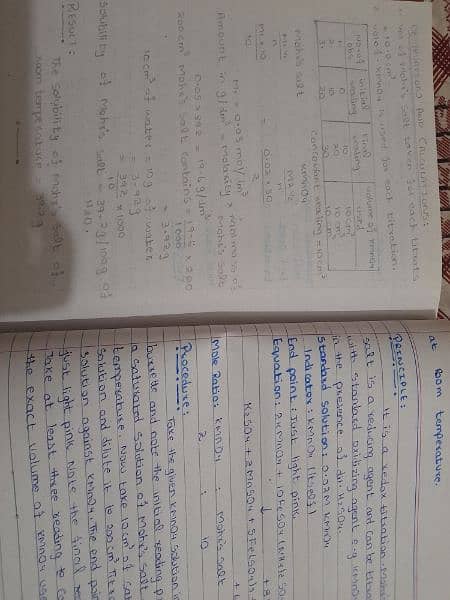 OBSERVATIONS AND CALCULATIONS:
Vol of Mohr's salt taken for each titrate
= 10.0 cm³
Vol of KMnO4 is used for each titration.
No. of obs | Initial reading | Final reading | Volume of KMnO4 used
1. | 0 | 10 | 10 cm³
2. | 10 | 20 | 10 cm³
3. | 20 | 30 | 10 cm³
concordant reading = 10 cm³
Mohr's salt
KMnO4
M1V1
M2V2
M1 × 10
0.02 × 10
10
2
Amount in g/dm³ = molarity ×
Mohr's salt
0.05 × 392 = 19.6 g/dm³
200 cm³ Mohr's salt contains = 19.6/1000 × 200
= 3.92 g
10 cm³ of water = 10 g of water
= 3.92 g
= 3.92/10 × 1000
Solubility of Mohr's salt = 39.2 g/100g of
H2O.
Result:
The solubility of Mohr's salt at
room temperature
at Room temperature.
PRINCIPLE:
It is a redox titration. Mohr's
salt is a reducing agent and can be
with standard oxidizing agent e.g KMnO4
in the presence of dil. H2SO4
Standard solution: 0.02M KMnO4
Indicator: KMnO4 (itself)
End point: Just light pink
Equation: 2KMnO4 + 10FeSO4
K2SO4 + 2MnSO4 + 5Fe2(SO4)3 +
Mole Ratio: KMnO4 : Mohr's Salt
2 : 10
Procedure:
Take the given KMnO4 solution in
burette and note the initial reading
a saturated solution of Mohr's salt
temperature. Now take 10 cm³ of
solution and dilute it to 200 cm³
solution against KMnO4. The end point
just light pink. Note the final
Take at least three reading to
the exact volume of KMnO4